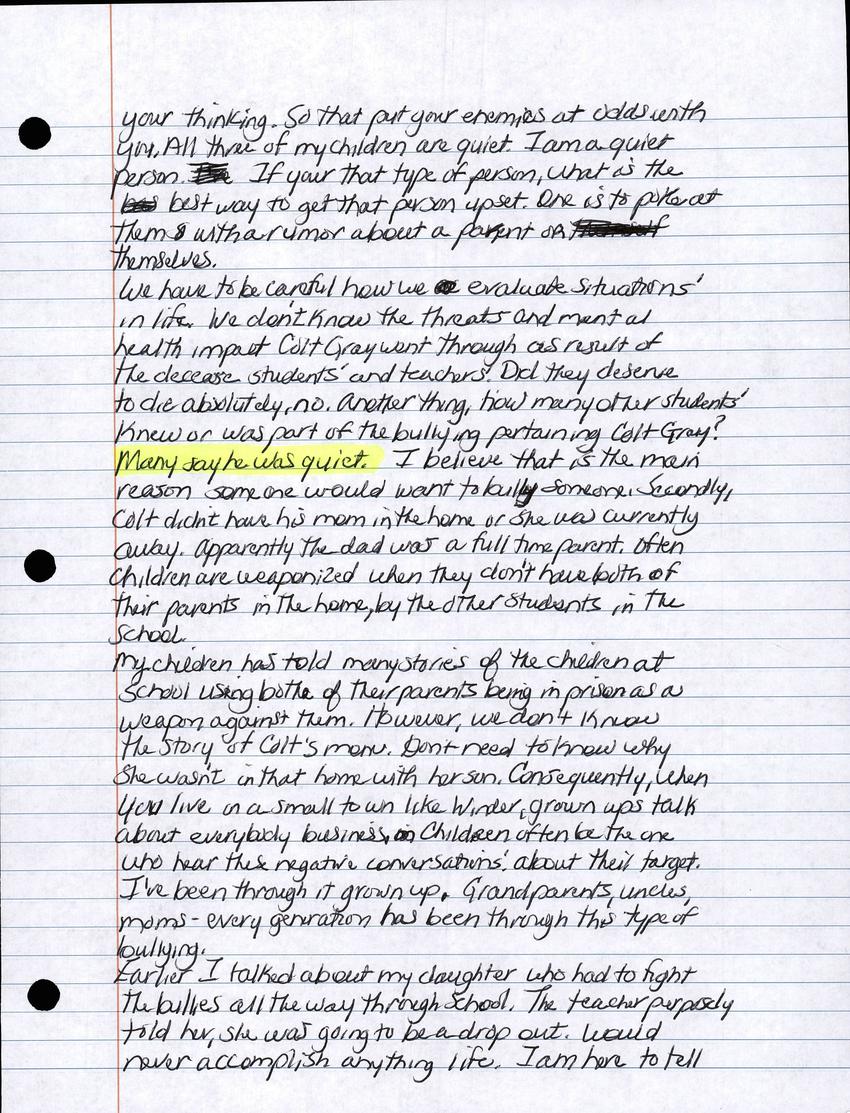 your thinking. So that put your enemies at odds with
you. All three of my children are quiet. I am a quiet
person. If your that type of person, what is the
best way to get that person upset. One is to poke at
them with a rumor about a parent or
themselves.
We have to be careful how we evaluate situations'
in life. We don't know the threats and mental
health impact Colt Gray went through as result of
the decease students' and teachers'. Did they deserve
to die absolutely, no. Another thing, how many other students'
knew or was part of the bullying pertaining Colt Gray?
Many say he was quiet. I believe that is the main
reason someone would want to bully someone. Secondly,
Colt didn't have his mom in the home or she was currently
away. Apparently the dad was a full time parent. Often
children are weaponized when they don't have both of
their parents in the home, by the other students in the
school.
My children has told many stories of the children at
school using bothe of their parents being in prison as a
weapon against them. However, we don't know
the story of Colt's mom. Don't need to know why
she wasn't in that home with her son. Consequently, when
you live in a small town like Winder, grown ups talk
about everybody business, Children often be the one
who hear these negative conversations' about their target.
I've been through it grown up. Grandparents, uncles,
moms - every generation has been through this type of
bullying.
Earlier I talked about my daughter who had to fight
the bullies all the way through school. The teacher purposely
told her, she was going to be a drop out. Would
never accomplish anything life. I am here to tell